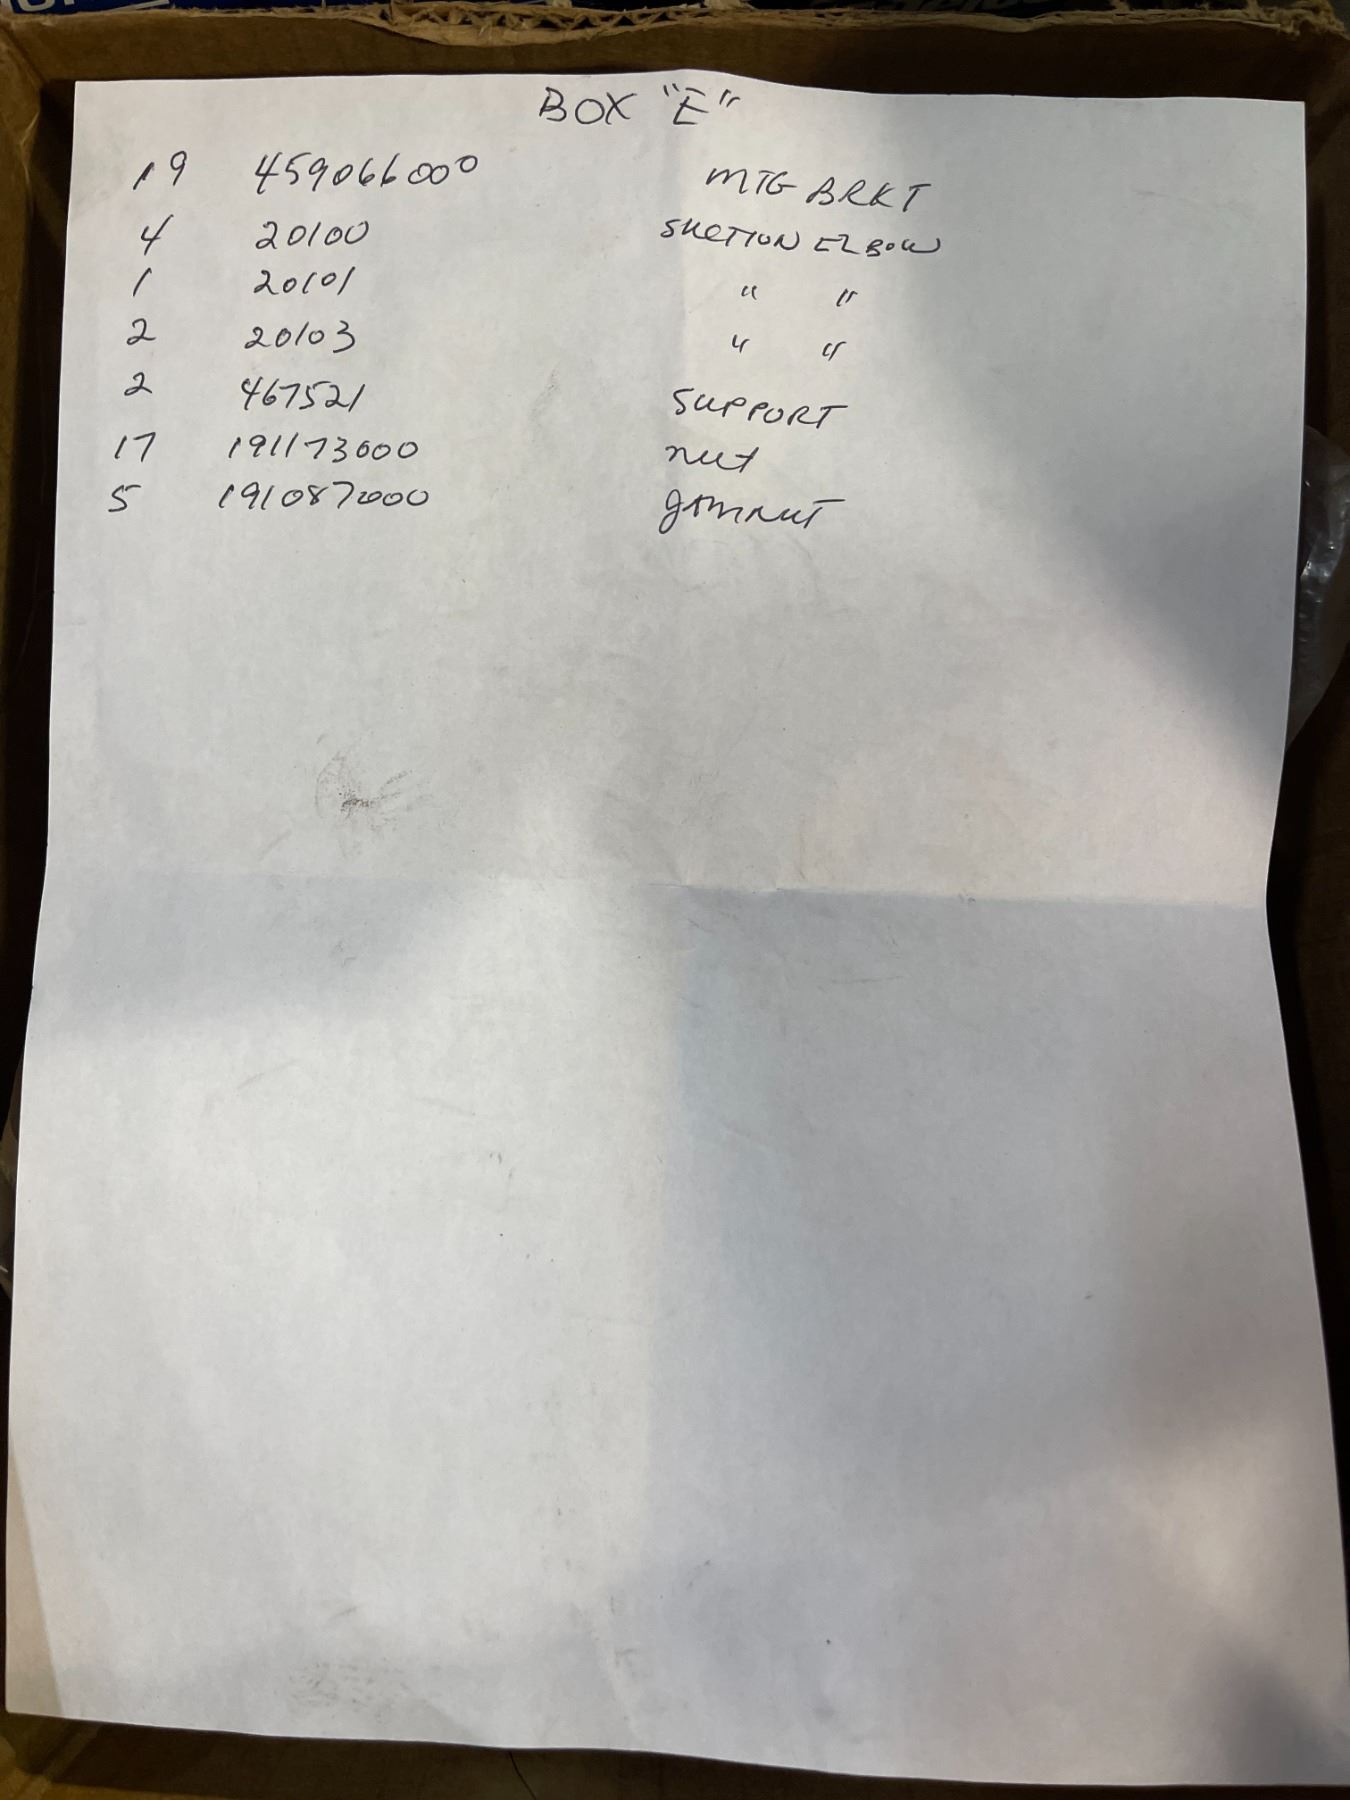 BOX "E"
19 459066000 MTG BRKT
4 20100 SUCTION ELBOW
1 20101 " "
2 20103 " "
2 467521 SUPPORT
17 191173000 nut
5 191087000